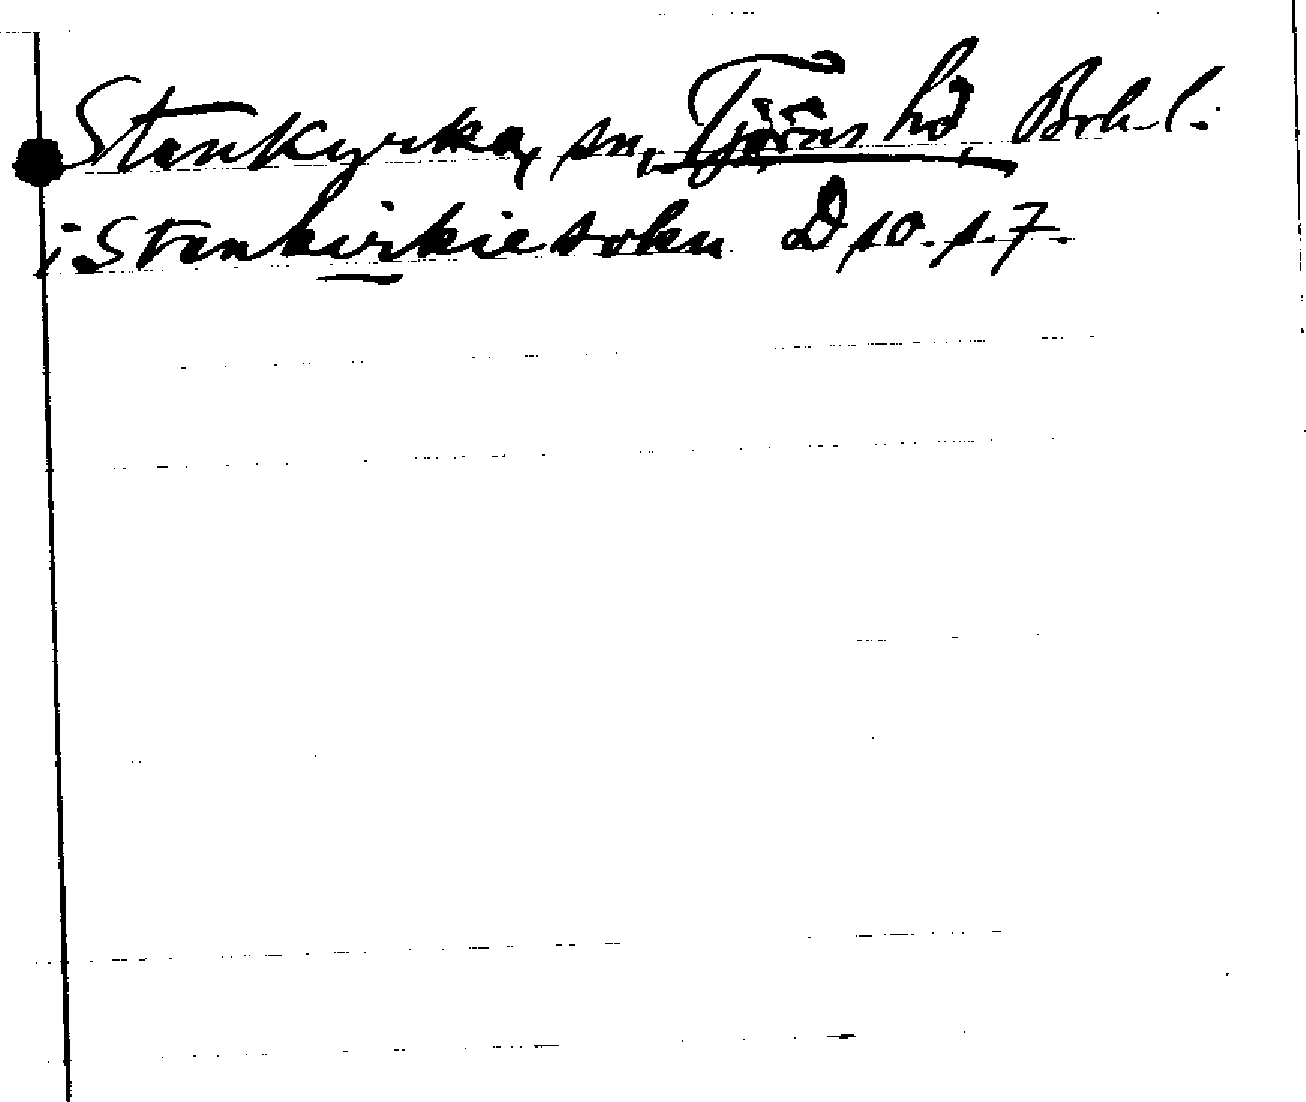 Stenkyrka, sn, Tjörns hd, Boh. l.
i Stenkirkie sokn D 10. s. 7.